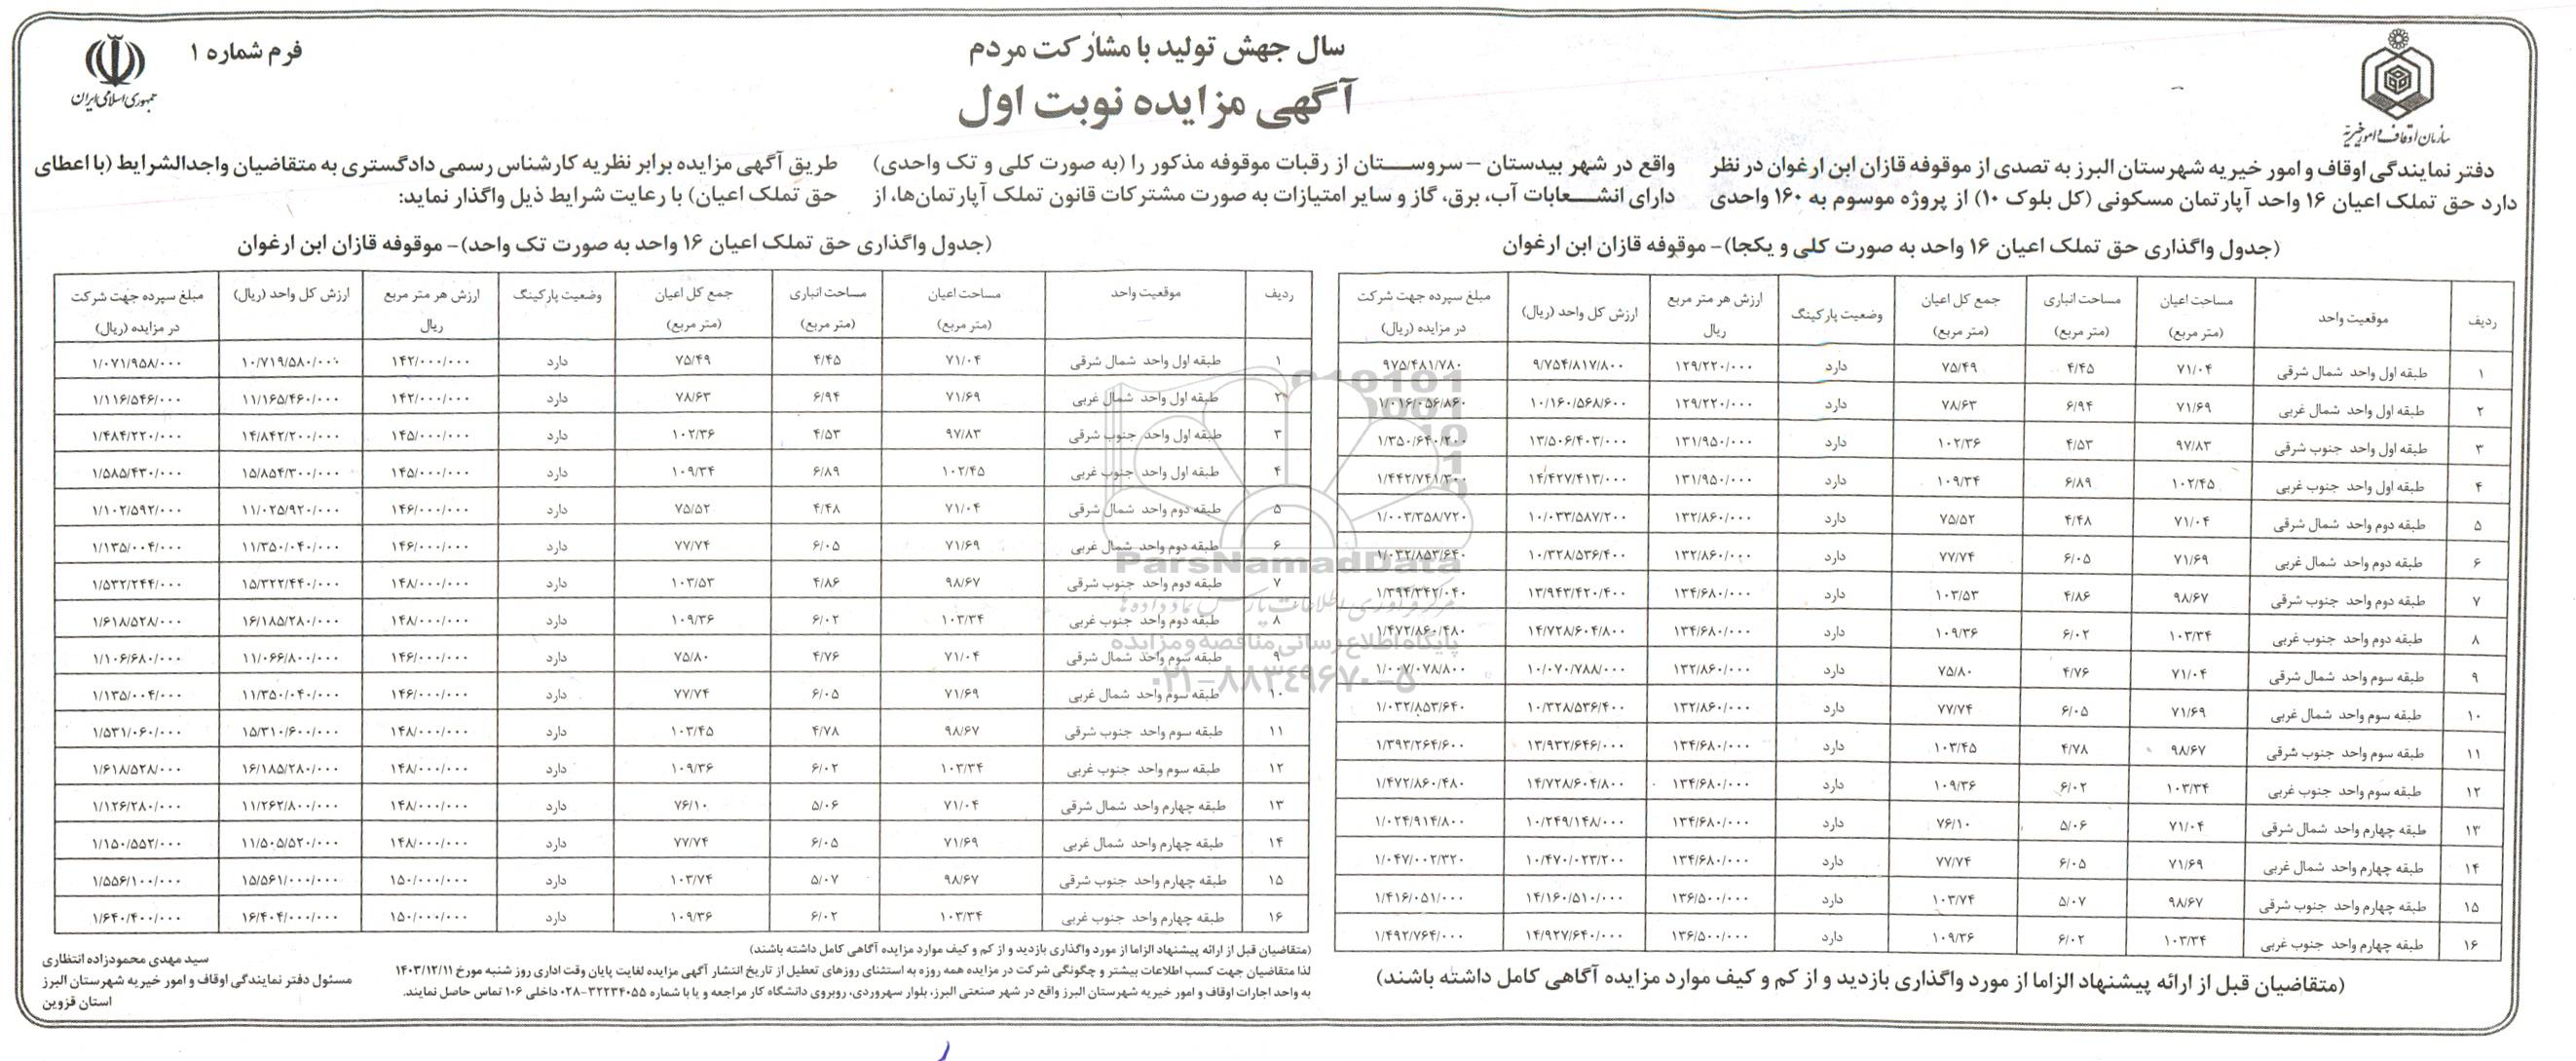 سال جهش تولید با مشارکت مردم
آگهی مزایده نوبت اول
فرم شماره ۱
جمهوری اسلامی ایران
سازمان اوقاف و امور خیریه
دفتر نمایندگی اوقاف و امور خیریه شهرستان البرز به تصدی از موقوفه قازان ابن ارغوان در نظر
دارد حق تملک اعیان ۱۶ واحد آپارتمان مسکونی (کل بلوک ۱۰) از پروژه موسوم به ۱۶۰ واحدی
واقع در شهر بیدستان – سروستان از رقبات موقوفه مذکور را (به صورت کلی و تک واحدی)
دارای انشعابات آب، برق، گاز و سایر امتیازات به صورت مشترکات قانون تملک آپارتمان‌ها، از
طریق آگهی مزایده برابر نظریه کارشناس رسمی دادگستری به متقاضیان واجدالشرایط (با اعطای
حق تملک اعیان) با رعایت شرایط ذیل واگذار نماید:
(جدول واگذاری حق تملک اعیان ۱۶ واحد به صورت کلی و یکجا)- موقوفه قازان ابن ارغوان
ردیف موقعیت واحد مساحت اعیان (متر مربع) مساحت انباری (متر مربع) جمع کل اعیان (متر مربع) وضعیت پارکینگ ارزش هر متر مربع ریال ارزش کل واحد (ریال) مبلغ سپرده جهت شرکت در مزایده (ریال)
۱ طبقه اول واحد شمال شرقی ۷۱/۰۴ ۴/۴۵ ۷۵/۴۹ دارد ۱۲۹/۲۲۰/۰۰۰ ۹/۷۵۴/۸۱۷/۸۰۰ ۹۷۵/۴۸۱/۷۸۰
۲ طبقه اول واحد شمال غربی ۷۱/۶۹ ۶/۹۴ ۷۸/۶۳ دارد ۱۲۹/۲۲۰/۰۰۰ ۱۰/۱۶۰/۵۶۸/۶۰۰ ۱/۰۱۶/۰۵۶/۸۶۰
۳ طبقه اول واحد جنوب شرقی ۹۷/۸۳ ۴/۵۳ ۱۰۲/۳۶ دارد ۱۳۱/۹۵۰/۰۰۰ ۱۳/۵۰۶/۴۰۳/۰۰۰ ۱/۳۵۰/۶۴۰/۲۰۰
۴ طبقه اول واحد جنوب غربی ۱۰۲/۴۵ ۶/۸۹ ۱۰۹/۳۴ دارد ۱۳۱/۹۵۰/۰۰۰ ۱۴/۴۲۷/۴۱۳/۰۰۰ ۱/۴۴۲/۷۴۱/۳۰۰
۵ طبقه دوم واحد شمال شرقی ۷۱/۰۴ ۴/۴۸ ۷۵/۵۲ دارد ۱۳۲/۸۶۰/۰۰۰ ۱۰/۰۳۳/۵۸۷/۲۰۰ ۱/۰۰۳/۳۵۸/۷۲۰
۶ طبقه دوم واحد شمال غربی ۷۱/۶۹ ۶/۰۵ ۷۷/۷۴ دارد ۱۳۲/۸۶۰/۰۰۰ ۱۰/۳۲۸/۵۳۶/۴۰۰ ۱/۰۳۲/۸۵۳/۶۴۰
۷ طبقه دوم واحد جنوب شرقی ۹۸/۶۷ ۴/۸۶ ۱۰۳/۵۳ دارد ۱۳۴/۶۸۰/۰۰۰ ۱۳/۹۴۳/۴۲۰/۴۰۰ ۱/۳۹۴/۳۴۲/۰۴۰
۸ طبقه دوم واحد جنوب غربی ۱۰۳/۳۴ ۶/۰۲ ۱۰۹/۳۶ دارد ۱۳۴/۶۸۰/۰۰۰ ۱۴/۷۲۸/۶۰۴/۸۰۰ ۱/۴۷۲/۸۶۰/۴۸۰
۹ طبقه سوم واحد شمال شرقی ۷۱/۰۴ ۴/۷۶ ۷۵/۸۰ دارد ۱۳۲/۸۶۰/۰۰۰ ۱۰/۰۷۰/۷۸۸/۰۰۰ ۱/۰۰۷/۰۷۸/۸۰۰
۱۰ طبقه سوم واحد شمال غربی ۷۱/۶۹ ۶/۰۵ ۷۷/۷۴ دارد ۱۳۲/۸۶۰/۰۰۰ ۱۰/۳۲۸/۵۳۶/۴۰۰ ۱/۰۳۲/۸۵۳/۶۴۰
۱۱ طبقه سوم واحد جنوب شرقی ۹۸/۶۷ ۴/۷۸ ۱۰۳/۴۵ دارد ۱۳۴/۶۸۰/۰۰۰ ۱۳/۹۳۲/۶۴۶/۰۰۰ ۱/۳۹۳/۲۶۴/۶۰۰
۱۲ طبقه سوم واحد جنوب غربی ۱۰۳/۳۴ ۶/۰۲ ۱۰۹/۳۶ دارد ۱۳۴/۶۸۰/۰۰۰ ۱۴/۷۲۸/۶۰۴/۸۰۰ ۱/۴۷۲/۸۶۰/۴۸۰
۱۳ طبقه چهارم واحد شمال شرقی ۷۱/۰۴ ۵/۰۶ ۷۶/۱۰ دارد ۱۳۴/۶۸۰/۰۰۰ ۱۰/۲۴۹/۱۴۸/۰۰۰ ۱/۰۲۴/۹۱۴/۸۰۰
۱۴ طبقه چهارم واحد شمال غربی ۷۱/۶۹ ۶/۰۵ ۷۷/۷۴ دارد ۱۳۴/۶۸۰/۰۰۰ ۱۰/۴۷۰/۰۲۳/۲۰۰ ۱/۰۴۷/۰۰۲/۳۲۰
۱۵ طبقه چهارم واحد جنوب شرقی ۹۸/۶۷ ۵/۰۷ ۱۰۳/۷۴ دارد ۱۳۶/۵۰۰/۰۰۰ ۱۴/۱۶۰/۵۱۰/۰۰۰ ۱/۴۱۶/۰۵۱/۰۰۰
۱۶ طبقه چهارم واحد جنوب غربی ۱۰۳/۳۴ ۶/۰۲ ۱۰۹/۳۶ دارد ۱۳۶/۵۰۰/۰۰۰ ۱۴/۹۲۷/۶۴۰/۰۰۰ ۱/۴۹۲/۷۶۴/۰۰۰
(متقاضیان قبل از ارائه پیشنهاد الزاما از مورد واگذاری بازدید و از کم و کیف موارد مزایده آگاهی کامل داشته باشند)
(جدول واگذاری حق تملک اعیان ۱۶ واحد به صورت تک واحد)- موقوفه قازان ابن ارغوان
ردیف موقعیت واحد مساحت اعیان (متر مربع) مساحت انباری (متر مربع) جمع کل اعیان (متر مربع) وضعیت پارکینگ ارزش هر متر مربع ریال ارزش کل واحد (ریال) مبلغ سپرده جهت شرکت در مزایده (ریال)
۱ طبقه اول واحد شمال شرقی ۷۱/۰۴ ۴/۴۵ ۷۵/۴۹ دارد ۱۴۲/۰۰۰/۰۰۰ ۱۰/۷۱۹/۵۸۰/۰۰۰ ۱/۰۷۱/۹۵۸/۰۰۰
۲ طبقه اول واحد شمال غربی ۷۱/۶۹ ۶/۹۴ ۷۸/۶۳ دارد ۱۴۲/۰۰۰/۰۰۰ ۱۱/۱۶۵/۴۶۰/۰۰۰ ۱/۱۱۶/۵۴۶/۰۰۰
۳ طبقه اول واحد جنوب شرقی ۹۷/۸۳ ۴/۵۳ ۱۰۲/۳۶ دارد ۱۴۵/۰۰۰/۰۰۰ ۱۴/۸۴۲/۲۰۰/۰۰۰ ۱/۴۸۴/۲۲۰/۰۰۰
۴ طبقه اول واحد جنوب غربی ۱۰۲/۴۵ ۶/۸۹ ۱۰۹/۳۴ دارد ۱۴۵/۰۰۰/۰۰۰ ۱۵/۸۵۴/۳۰۰/۰۰۰ ۱/۵۸۵/۴۳۰/۰۰۰
۵ طبقه دوم واحد شمال شرقی ۷۱/۰۴ ۴/۴۸ ۷۵/۵۲ دارد ۱۴۶/۰۰۰/۰۰۰ ۱۱/۰۲۵/۹۲۰/۰۰۰ ۱/۱۰۲/۵۹۲/۰۰۰
۶ طبقه دوم واحد شمال غربی ۷۱/۶۹ ۶/۰۵ ۷۷/۷۴ دارد ۱۴۶/۰۰۰/۰۰۰ ۱۱/۳۵۰/۰۴۰/۰۰۰ ۱/۱۳۵/۰۰۴/۰۰۰
۷ طبقه دوم واحد جنوب شرقی ۹۸/۶۷ ۴/۸۶ ۱۰۳/۵۳ دارد ۱۴۸/۰۰۰/۰۰۰ ۱۵/۳۲۲/۴۴۰/۰۰۰ ۱/۵۳۲/۲۴۴/۰۰۰
۸ طبقه دوم واحد جنوب غربی ۱۰۳/۳۴ ۶/۰۲ ۱۰۹/۳۶ دارد ۱۴۸/۰۰۰/۰۰۰ ۱۶/۱۸۵/۲۸۰/۰۰۰ ۱/۶۱۸/۵۲۸/۰۰۰
۹ طبقه سوم واحد شمال شرقی ۷۱/۰۴ ۴/۷۶ ۷۵/۸۰ دارد ۱۴۶/۰۰۰/۰۰۰ ۱۱/۰۶۶/۸۰۰/۰۰۰ ۱/۱۰۶/۶۸۰/۰۰۰
۱۰ طبقه سوم واحد شمال غربی ۷۱/۶۹ ۶/۰۵ ۷۷/۷۴ دارد ۱۴۶/۰۰۰/۰۰۰ ۱۱/۳۵۰/۰۴۰/۰۰۰ ۱/۱۳۵/۰۰۴/۰۰۰
۱۱ طبقه سوم واحد جنوب شرقی ۹۸/۶۷ ۴/۷۸ ۱۰۳/۴۵ دارد ۱۴۸/۰۰۰/۰۰۰ ۱۵/۳۱۰/۶۰۰/۰۰۰ ۱/۵۳۱/۰۶۰/۰۰۰
۱۲ طبقه سوم واحد جنوب غربی ۱۰۳/۳۴ ۶/۰۲ ۱۰۹/۳۶ دارد ۱۴۸/۰۰۰/۰۰۰ ۱۶/۱۸۵/۲۸۰/۰۰۰ ۱/۶۱۸/۵۲۸/۰۰۰
۱۳ طبقه چهارم واحد شمال شرقی ۷۱/۰۴ ۵/۰۶ ۷۶/۱۰ دارد ۱۴۸/۰۰۰/۰۰۰ ۱۱/۲۶۲/۸۰۰/۰۰۰ ۱/۱۲۶/۲۸۰/۰۰۰
۱۴ طبقه چهارم واحد شمال غربی ۷۱/۶۹ ۶/۰۵ ۷۷/۷۴ دارد ۱۴۸/۰۰۰/۰۰۰ ۱۱/۵۰۵/۵۲۰/۰۰۰ ۱/۱۵۰/۵۵۲/۰۰۰
۱۵ طبقه چهارم واحد جنوب شرقی ۹۸/۶۷ ۵/۰۷ ۱۰۳/۷۴ دارد ۱۵۰/۰۰۰/۰۰۰ ۱۵/۵۶۱/۰۰۰/۰۰۰ ۱/۵۵۶/۱۰۰/۰۰۰
۱۶ طبقه چهارم واحد جنوب غربی ۱۰۳/۳۴ ۶/۰۲ ۱۰۹/۳۶ دارد ۱۵۰/۰۰۰/۰۰۰ ۱۶/۴۰۴/۰۰۰/۰۰۰ ۱/۶۴۰/۴۰۰/۰۰۰
(متقاضیان قبل از ارائه پیشنهاد الزاما از مورد واگذاری بازدید و از کم و کیف موارد مزایده آگاهی کامل داشته باشند)
لذا متقاضیان جهت کسب اطلاعات بیشتر و چگونگی شرکت در مزایده همه روزه به استثنای روزهای تعطیل از تاریخ انتشار آگهی مزایده لغایت پایان وقت اداری روز شنبه مورخ ۱۴۰۳/۱۲/۱۱
به واحد اجارات اوقاف و امور خیریه شهرستان البرز واقع در شهر صنعتی البرز، بلوار سهروردی، روبروی دانشگاه کار مراجعه و یا با شماره ۳۲۲۳۴۰۵۵-۰۲۸ داخلی ۱۰۶ تماس حاصل نمایند.
سید مهدی محمودزاده انتظاری
مسئول دفتر نمایندگی اوقاف و امور خیریه شهرستان البرز
استان قزوین
ParsNamadData
مرکز فرآوری اطلاعات پارس نماد داده‌ها
پایگاه اطلاع رسانی مناقصه و مزایده
۰۲۱-۸۸۳۴۹۶۷۰-۵